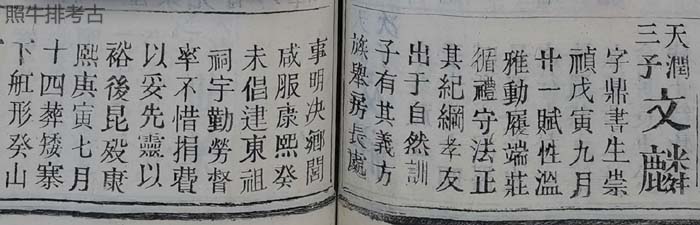 照牛排考古
天潤
三子
文麟
字鼎書生崇
禎戊寅九月
廿一賦性溫
雅動履端莊
循禮守法正
其紀綱孝友
出于自然訓
子有其義方
族舉房長處
事明決鄉閭
咸服康熙癸
未倡建東祖
祠宇勤勞督
率不惜捐費
以妥先靈以
裕後昆歿康
熙庚寅七月
十四葬矮寨
下舡形癸山